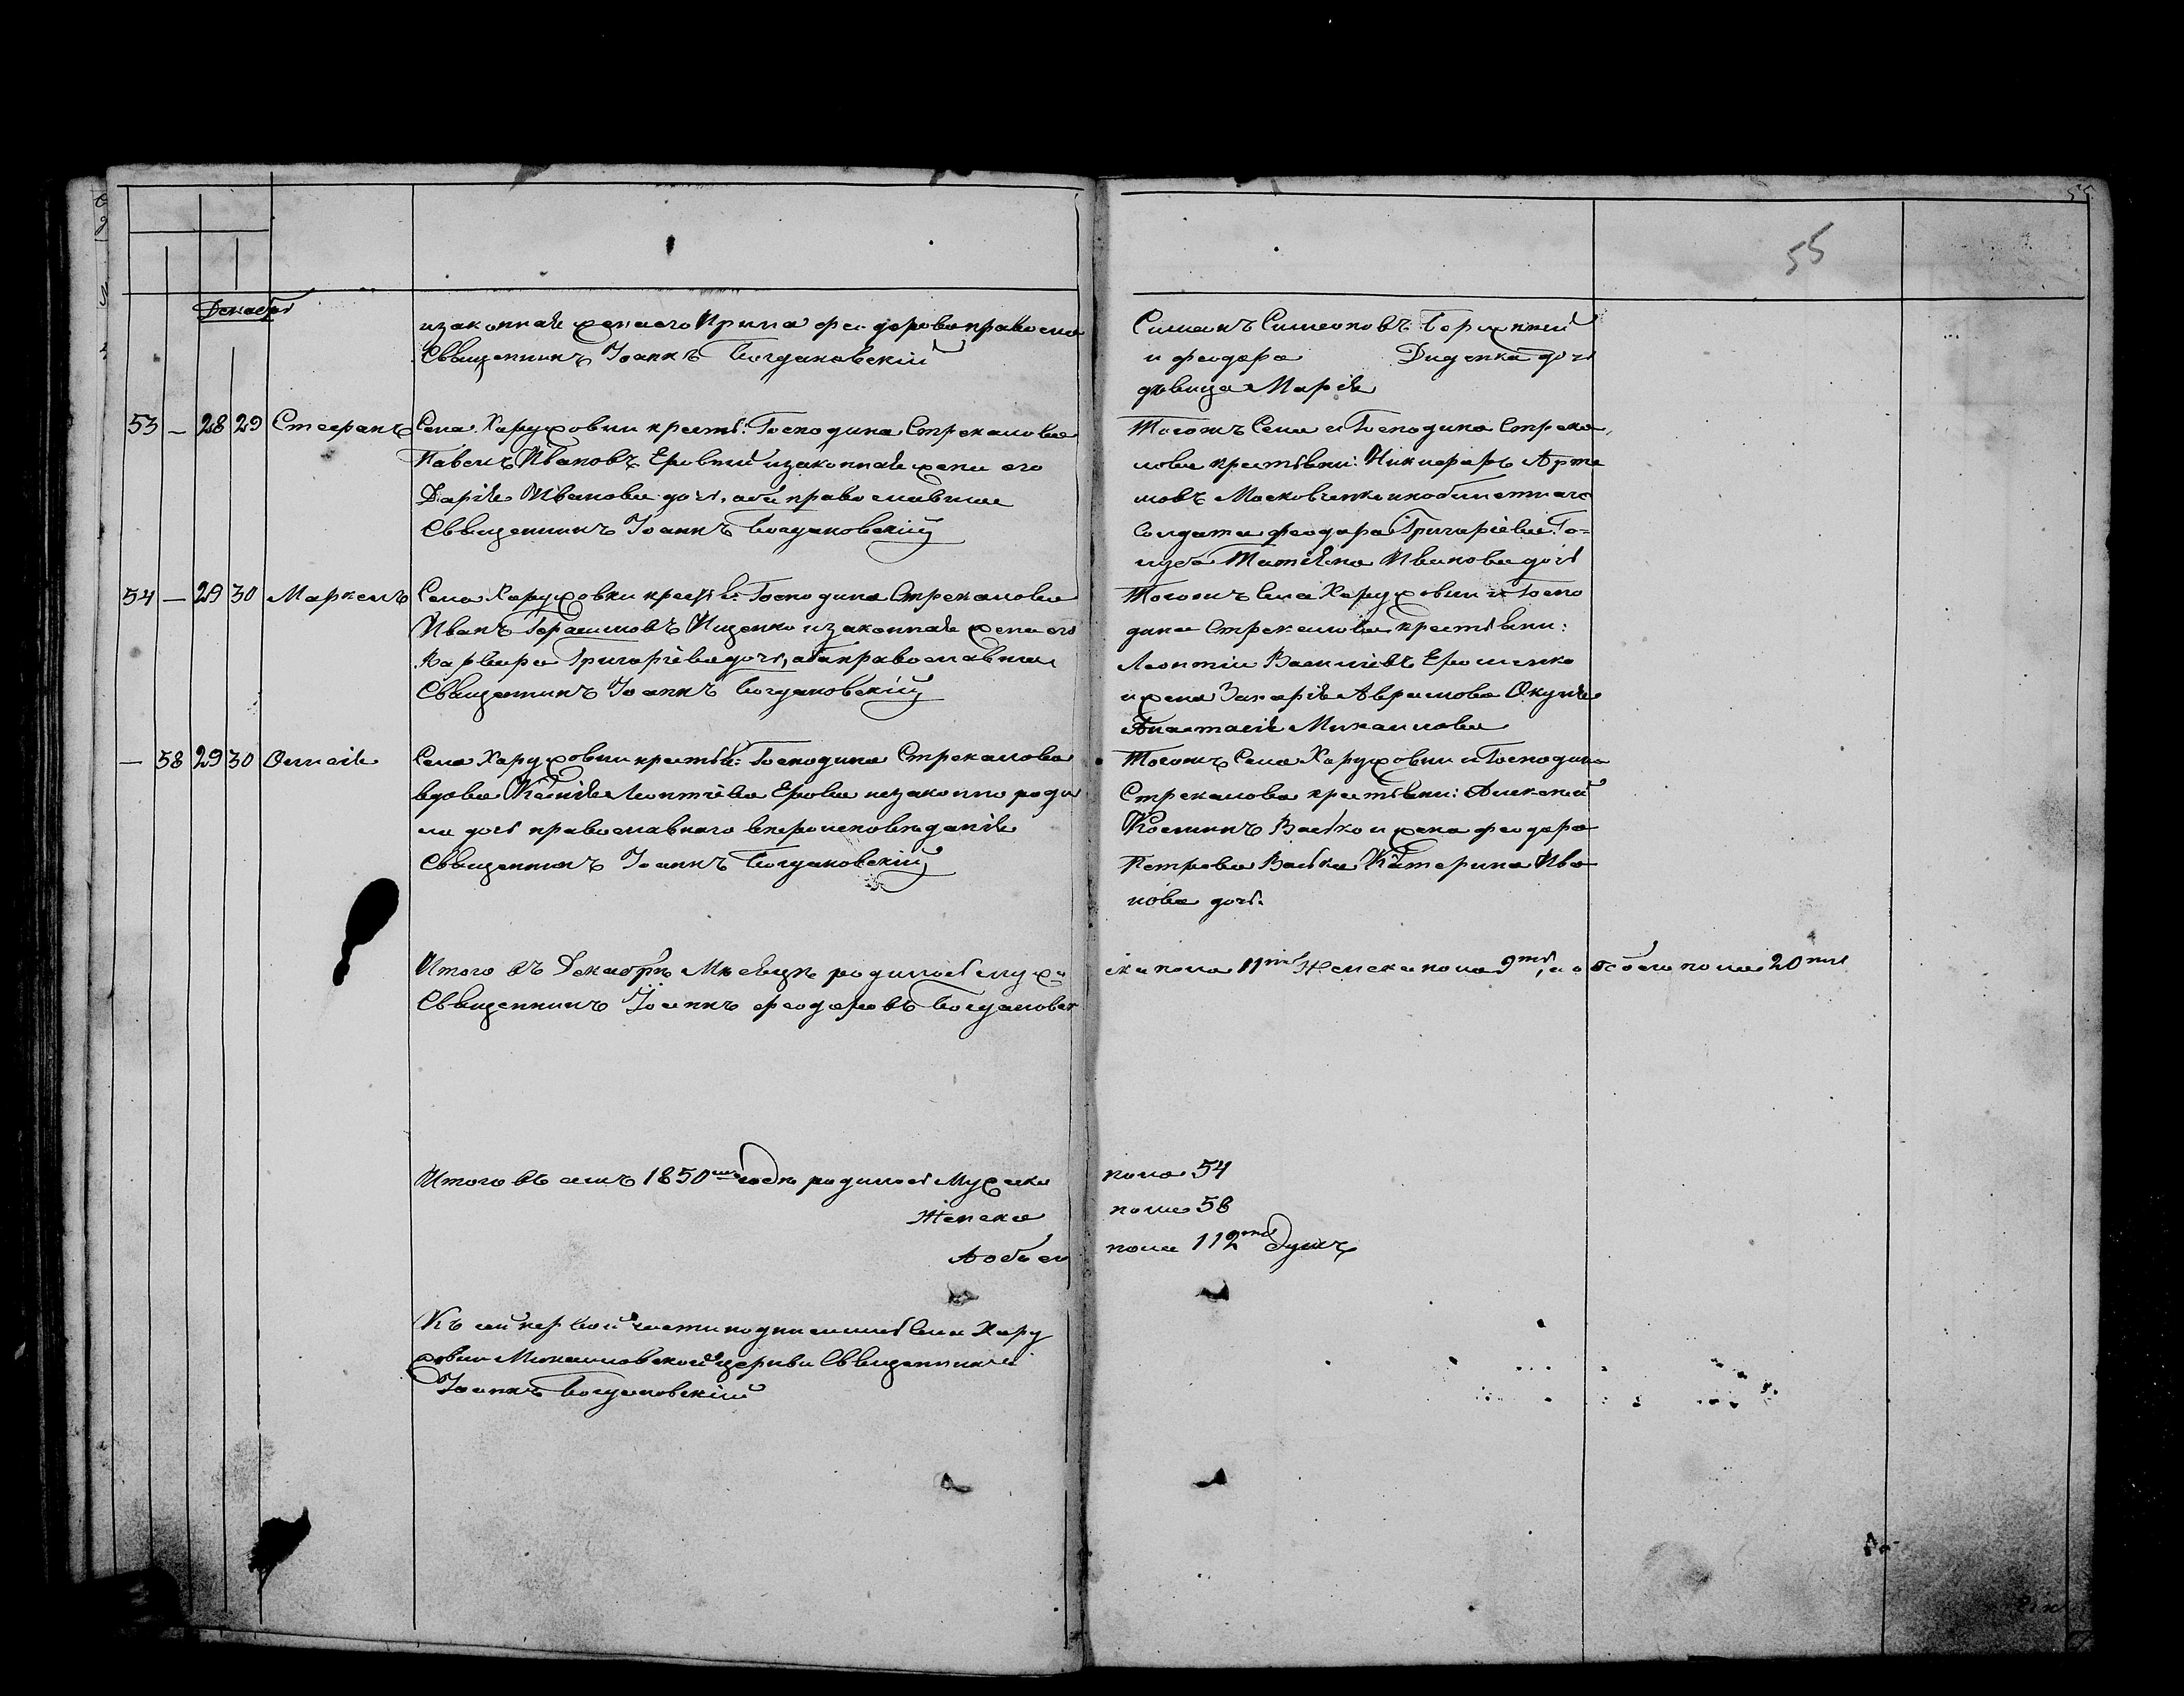 55
55
Декабрь
изаконная жена его Ирина Феодорова православ
Священникъ Іоаннъ Богдановскій
Симеонъ Симеоновъ
и Феодора Диденка дочь
дѣвица Марія
53 — 28 29 Стефанъ
Села Харуховки крестьян: Господина Стрекалова
Павелъ Ивановъ изаконная жена его
Дарія Иванова дочь, оба православные
Священникъ Іоаннъ Богдановскій
Тогожъ Села и Господина Стрека
лова крестьяни: Никифоръ Арте
мовъ Московченко
Солдата Феодора Григоріева Го=
луба Татіяна Иванова дочь
54 — 29 30 Маркелъ
Села Харуховки крестьян: Господина Стрекалова
Иванъ Герасимовъ Ищенко изаконная жена его
Варвара Григоріева дочь, оба православные
Священникъ Іоаннъ Богдановскій
Тогожъ Села Харуховки и Госпо
дина Стрекалова крестьяни:
Леонтій Васильевъ Ерошенко
и жена Захарія Аврамова Окуня
Анастасія Михаилова
— 58 29 30 Онисія
Села Харуховки крестьян: Господина Стрекалова
вдова Ксенія Леонтіева Ерова незаконно роди
ла дочь православнаго вѣроисповѣданія
Священникъ Іоаннъ Богдановскій
Тогожъ Села Харуховки и Господина
Стрекалова крестьяни: Алексей
Косминъ Васько и жена Феодора
Петрова Васька Катерина Ива
нова дочь.
Итого въ Декабрѣ Мѣсяцѣ родилось муже
ска пола 11ть Женска пола 9ть, а обоего пола 20ть
Священникъ Іоаннъ Феодоровъ Богдановск
Итого въ семъ 1850мъ годѣ родилось Мужска пола 54
Женска пола 58
А обоего пола 112ть душъ
Къ сей первой части подписался Села Хару
ховки Михаиловской церкви Священникъ
Іоаннъ Богдановскій